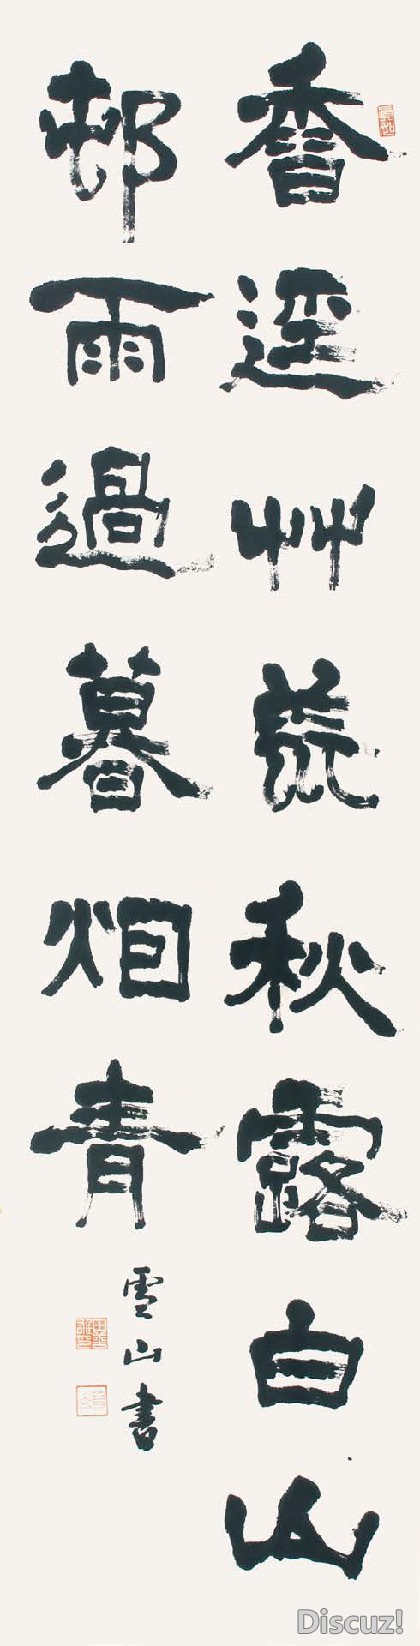 香逕艸荒秋露白山
邨雨過暮烟青
雪山書
Discuz!